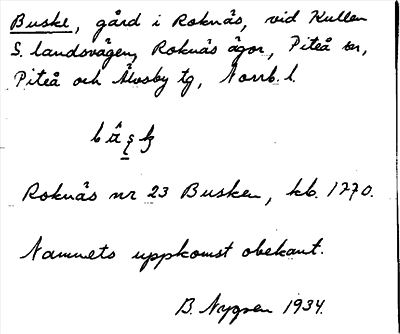 Buske, gård i Roknäs, vid Kullen
S. landsvägen, Roknäs ägor, Piteå sn,
Piteå och Älvsby tg, Norrb. l.
Roknäs nr 23 Busken, kb. 1770.
Namnets uppkomst obekant.
B. Nygren 1934.